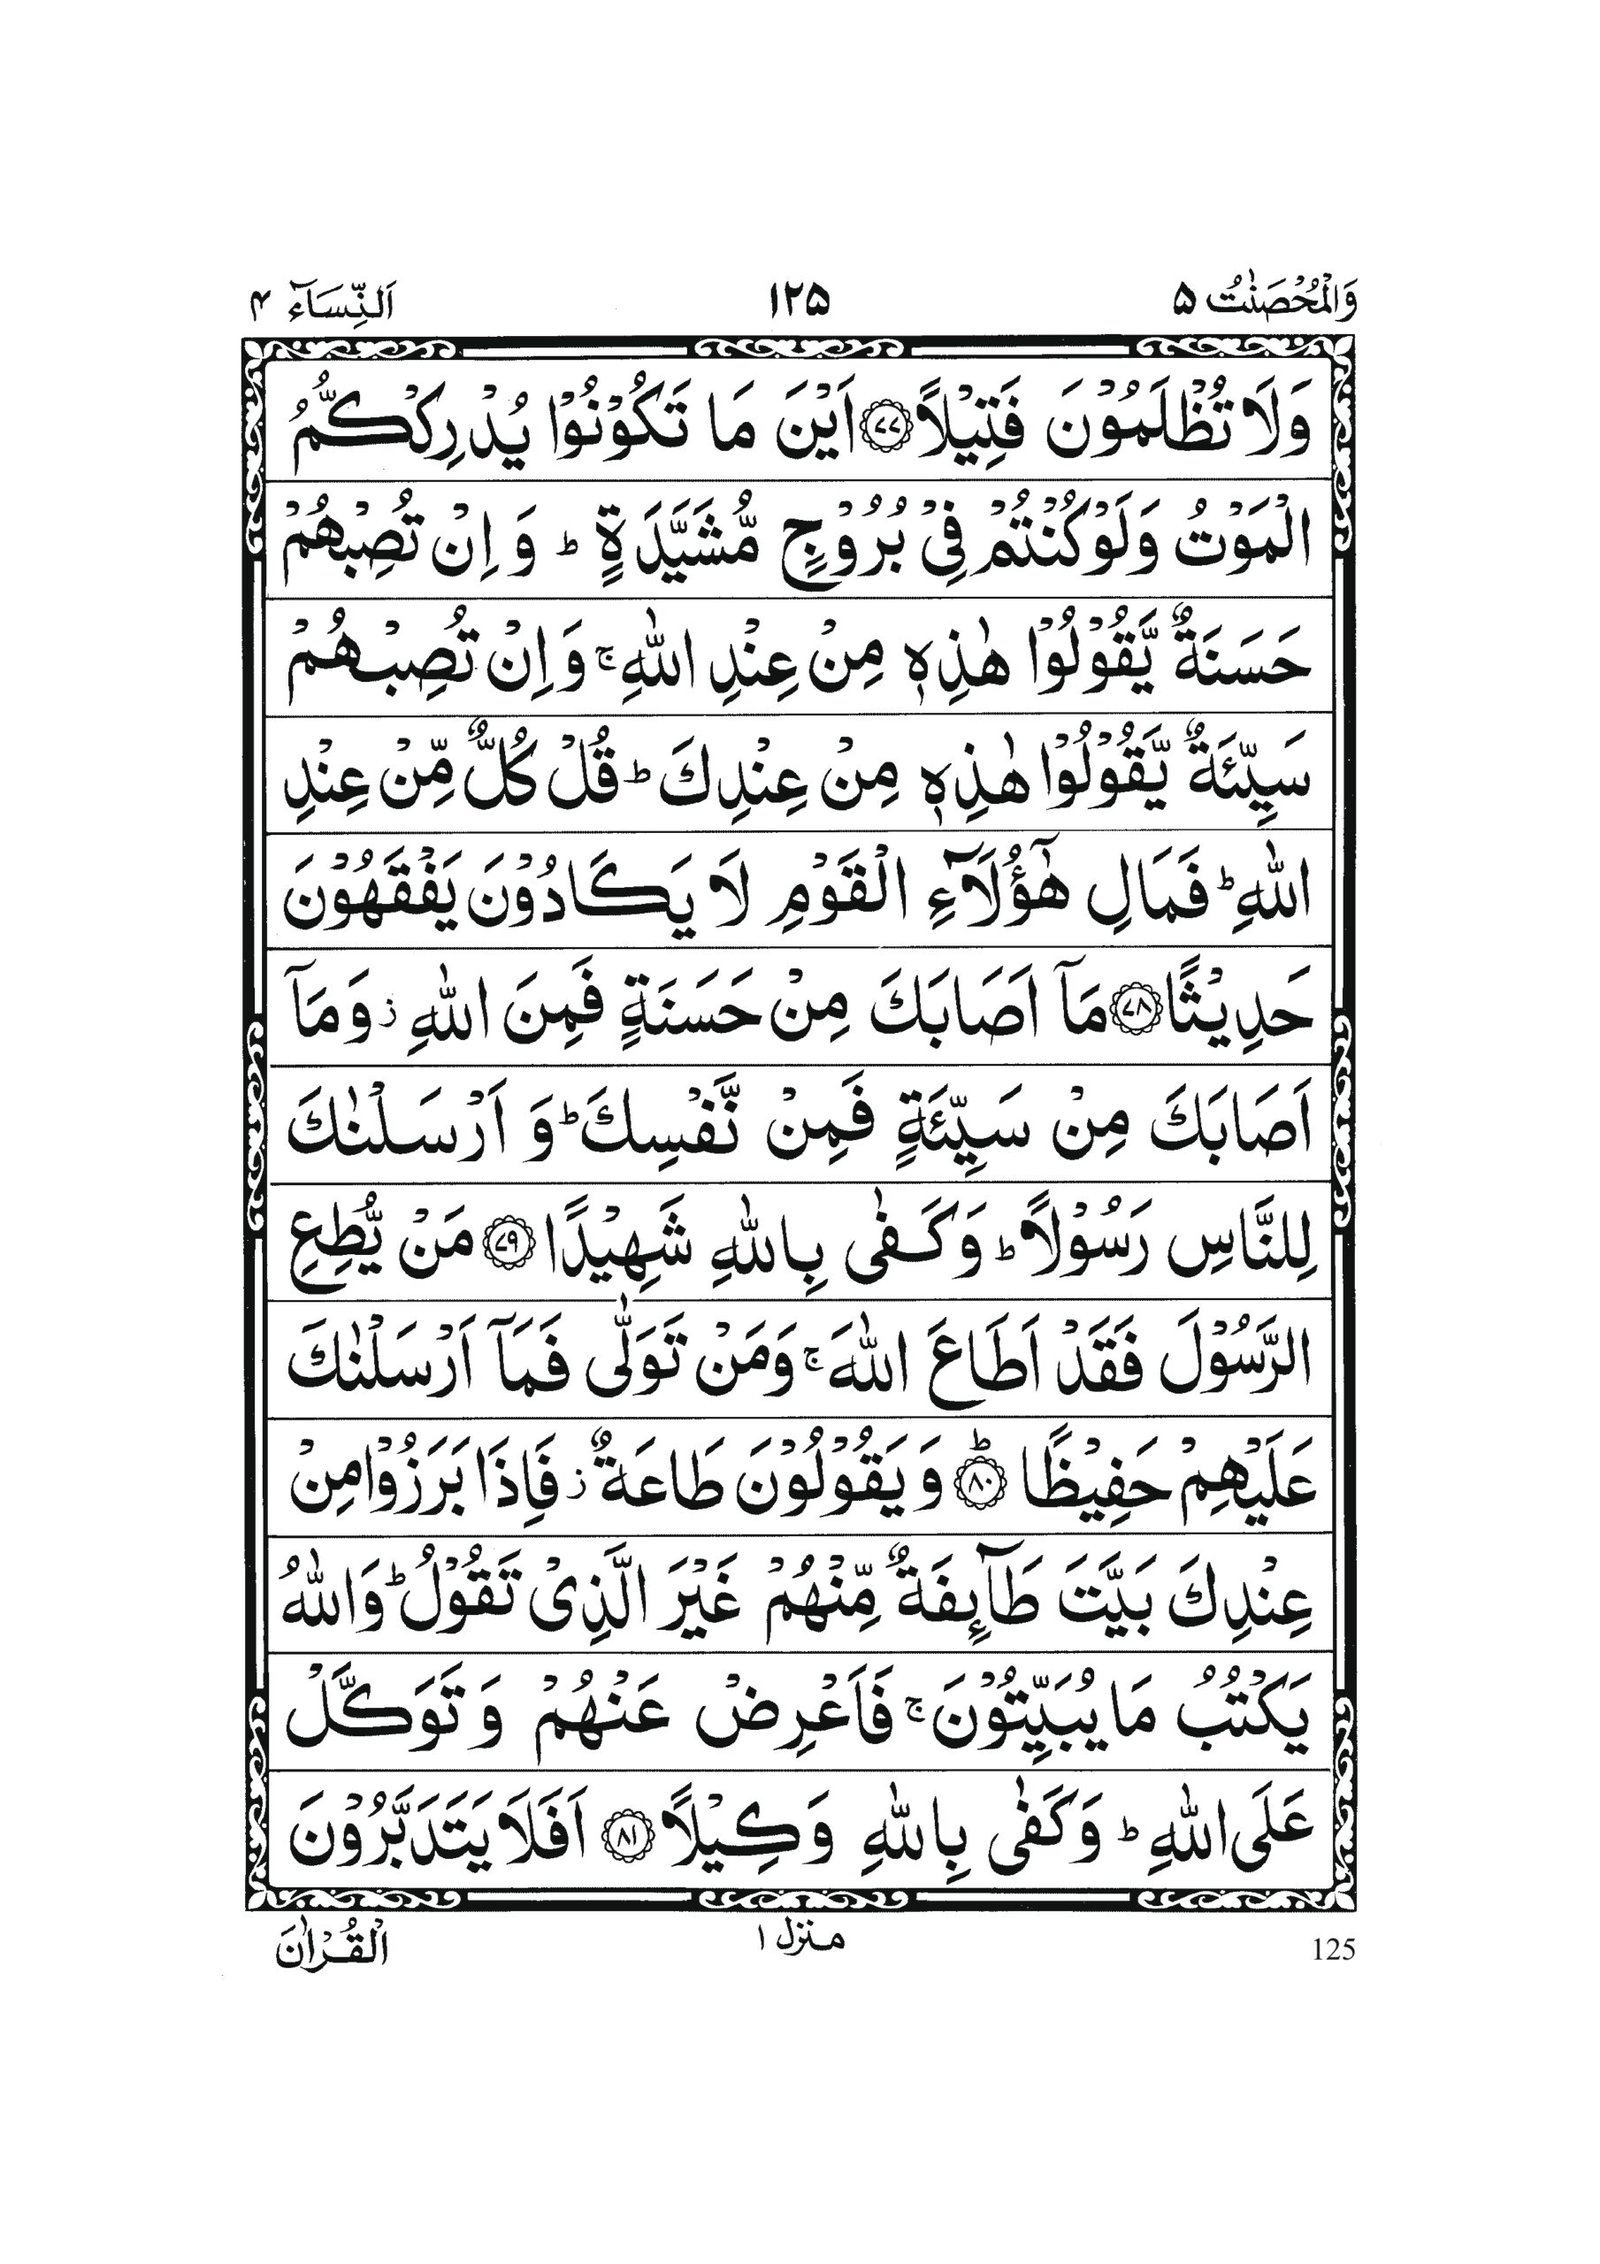 وَالْمُحْصَنٰتُ ۵ ۱۲۵ اَلنِّسَآء ۴
وَلَا تُظْلَمُوْنَ فَتِيْلًا ۝۷۷ اَيْنَ مَا تَكُوْنُوْا يُدْرِكْكُّمُ
الْمَوْتُ وَلَوْ كُنْتُمْ فِيْ بُرُوْجٍ مُّشَيَّدَةٍ ؕ وَ اِنْ تُصِبْهُمْ
حَسَنَةٌ يَّقُوْلُوْا هٰذِهٖ مِنْ عِنْدِ اللّٰهِ ۚ وَ اِنْ تُصِبْهُمْ
سَيِّئَةٌ يَّقُوْلُوْا هٰذِهٖ مِنْ عِنْدِكَ ؕ قُلْ كُلٌّ مِّنْ عِنْدِ
اللّٰهِ ؕ فَمَالِ هٰٓؤُلَآءِ الْقَوْمِ لَا يَكَادُوْنَ يَفْقَهُوْنَ
حَدِيْثًا ۝۷۸ مَآ اَصَابَكَ مِنْ حَسَنَةٍ فَمِنَ اللّٰهِ ز وَمَآ
اَصَابَكَ مِنْ سَيِّئَةٍ فَمِنْ نَّفْسِكَ ؕ وَ اَرْسَلْنٰكَ
لِلنَّاسِ رَسُوْلًا ؕ وَكَفٰى بِاللّٰهِ شَهِيْدًا ۝۷۹ مَنْ يُّطِعِ
الرَّسُوْلَ فَقَدْ اَطَاعَ اللّٰهَ ۚ وَمَنْ تَوَلّٰى فَمَآ اَرْسَلْنٰكَ
عَلَيْهِمْ حَفِيْظًا ؕ۝۸۰ وَ يَقُوْلُوْنَ طَاعَةٌ ز فَاِذَا بَرَزُوْا مِنْ
عِنْدِكَ بَيَّتَ طَآئِفَةٌ مِّنْهُمْ غَيْرَ الَّذِيْ تَقُوْلُ ؕ وَاللّٰهُ
يَكْتُبُ مَا يُبَيِّتُوْنَ ۚ فَاَعْرِضْ عَنْهُمْ وَ تَوَكَّلْ
عَلَى اللّٰهِ ؕ وَكَفٰى بِاللّٰهِ وَكِيْلًا ۝۸۱ اَفَلَا يَتَدَبَّرُوْنَ
125 منزل ۱ الْقُرْاٰنَ